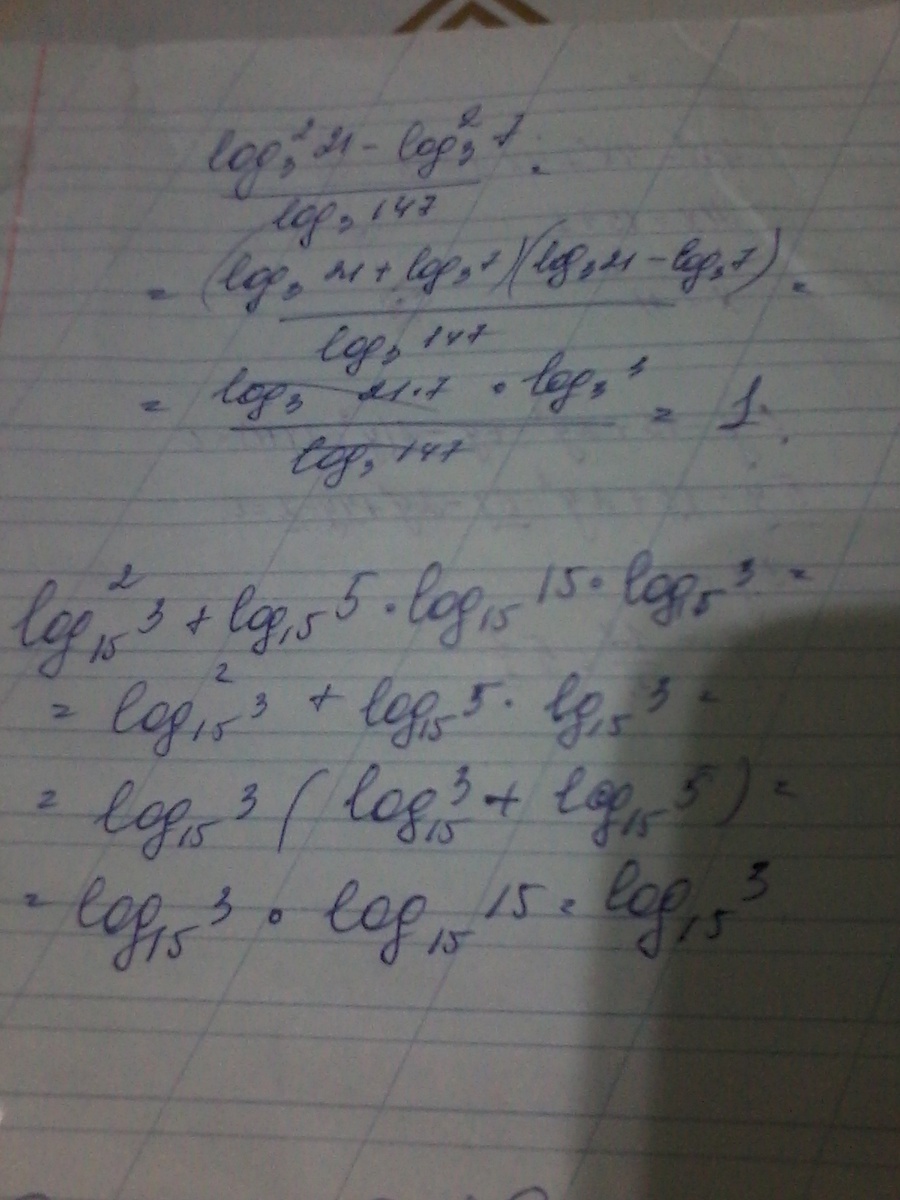 log₃² 21 - log₃² 7 =
log₃ 147
= (log₃ 21 + log₃ 7)(log₃ 21 - log₃ 7) =
log₃ 147
= log₃ 21·7 · log₃ 3 = 1.
log₃ 147
log₁₅² 3 + log₁₅ 5 · log₁₅ 15 · log₁₅ 3 =
= log₁₅² 3 + log₁₅ 5 · lg₁₅ 3 =
= log₁₅ 3 ( log₁₅ 3 + log₁₅ 5 ) =
= log₁₅ 3 · log₁₅ 15 = log₁₅ 3